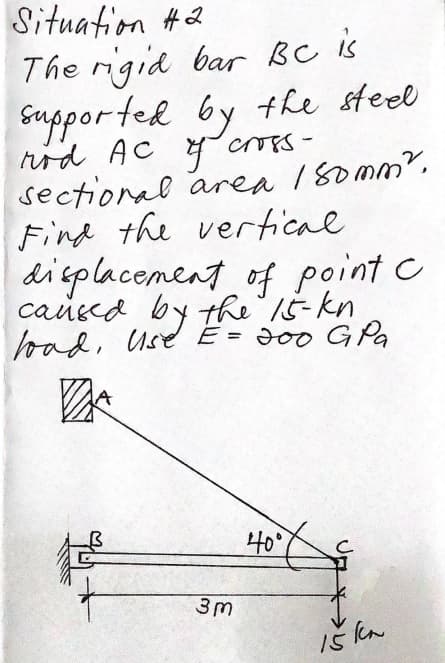 Situation #2
The rigid bar BC is
supported by the steel
rod AC of cross-
sectional area 180mm².
Find the vertical
displacement of point C
caused by the 15-kn
load. Use E = 200 GPa
A
B
40°
C
3m
15 kn